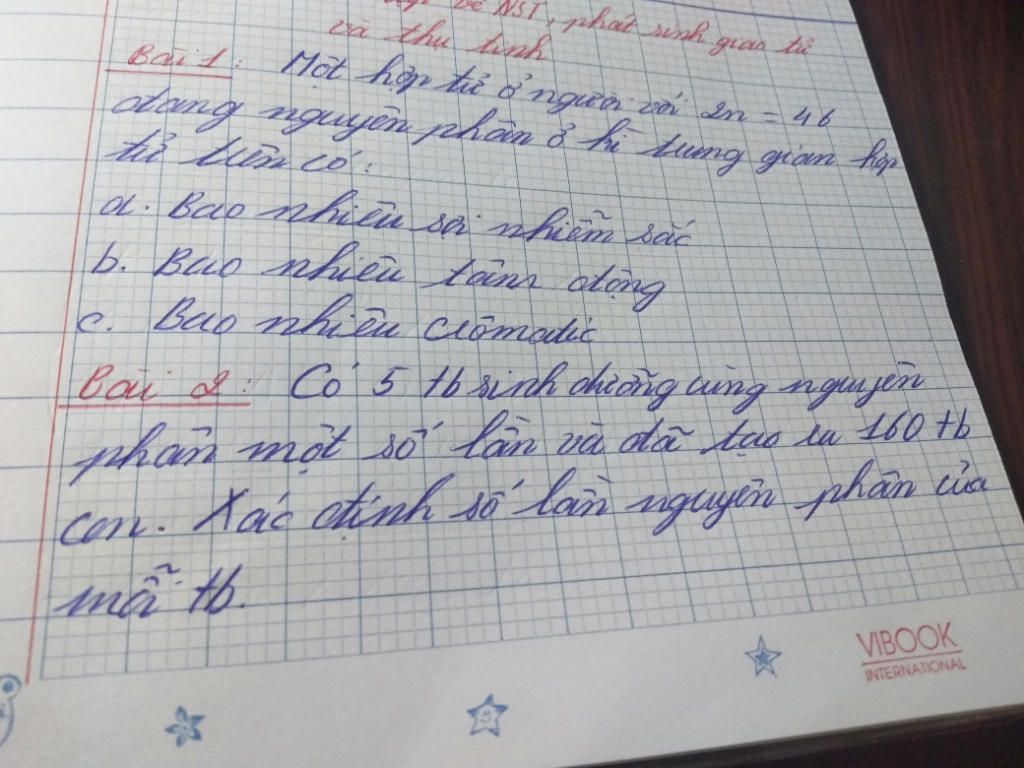 về NST, phát sinh giao tử
và thụ tinh
Bài 1: Một hợp tử ở người với 2n = 46
đang nguyên phân ở kì trung gian hợp
tử trên có:
a. Bao nhiêu sợi nhiễm sắc
b. Bao nhiêu tâm động
c. Bao nhiêu crômatic
Bài 2: Có 5 tb sinh dưỡng cùng nguyên
phân một số lần và đã tạo ra 160 tb
con. Xác định số lần nguyên phân của
mỗi tb.
VIBOOK
INTERNATIONAL